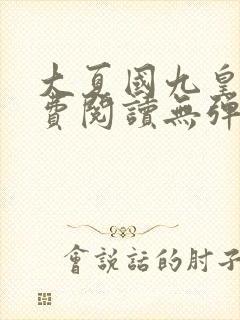 大夏國九皇
費閱讀無彈
會說話的肘子